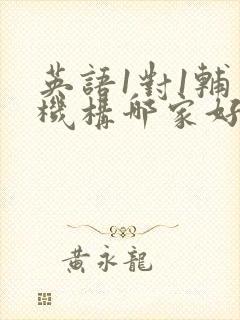 英語1對1輔
機構哪家好
黃永龍